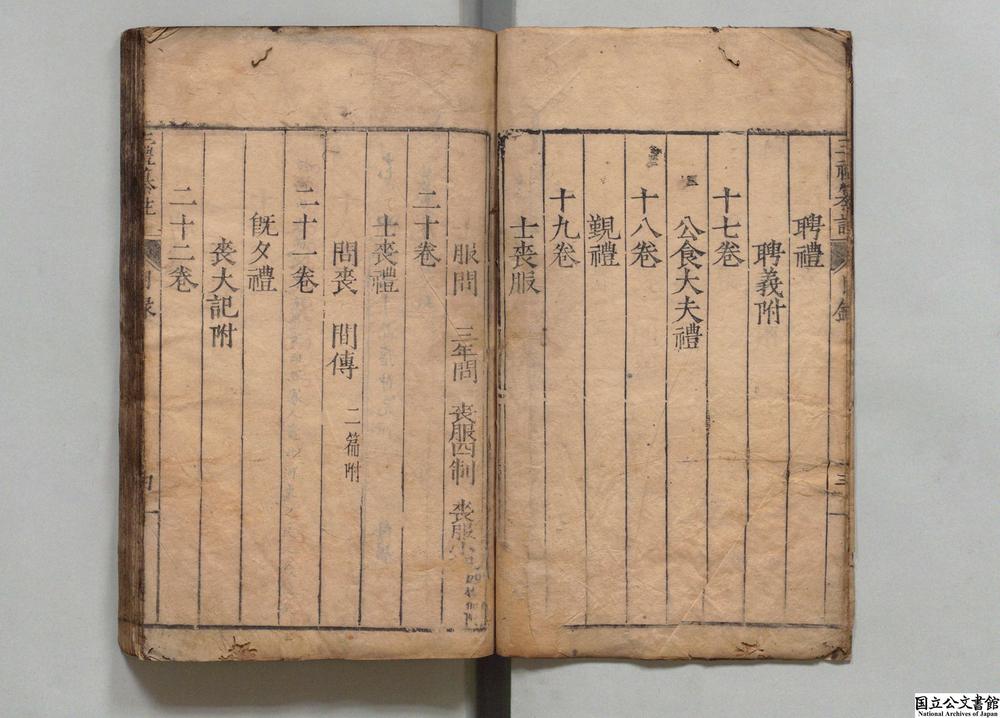 三禮纂註
目錄
三
聘禮
聘義附
十七卷
公食大夫禮
十八卷
覲禮
十九卷
士喪服
服問 三年問 喪服四制 喪服小
二十卷
士喪禮
問喪 間傳 二篇附
二十一卷
旣夕禮
喪大記附
二十二卷
目錄
国立公文書館
National Archives of Japan